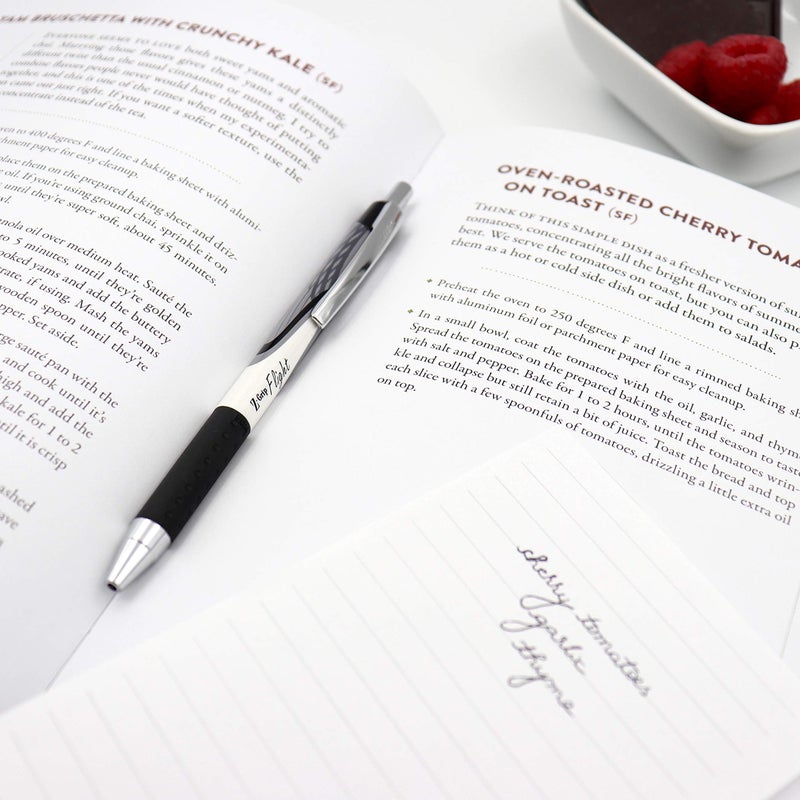 BRUSCHETTA WITH CRUNCHY KALE (SF)
EVERYONE SEEMS TO LOVE both sweet yams and aromatic
chai. Marrying those flavors gives these yams a distinctly
different twist than the usual cinnamon or nutmeg. I try to
combine flavors people never would have thought of putting
together, and this is one of the times when my experimenta-
came out just right. If you want a softer texture, use the
concentrate instead of the tea.
oven to 400 degrees F and line a baking sheet with alumi-
parchment paper for easy cleanup.
place them on the prepared baking sheet and driz-
oil. If you're using ground chai, sprinkle it on
until they're super soft, about 45 minutes.
canola oil over medium heat. Sauté the
to 5 minutes, until they're golden
cooked yams and add the buttery
if using. Mash the yams
wooden spoon until they're
pepper. Set aside.
large sauté pan with the
and cook until it's
high and add the
kale for 1 to 2
until it is crisp
Z-Grip Flight
OVEN-ROASTED CHERRY
ON TOAST (SF)
THINK OF THIS SIMPLE DISH as a fresher version of
tomatoes, concentrating all the bright flavors of
best. We serve the tomatoes on toast, but you can also
them as a hot or cold side dish or add them to salads.
Preheat the oven to 250 degrees F and line a rimmed baking
with aluminum foil or parchment paper for easy cleanup.
In a small bowl, coat the tomatoes with the oil, garlic, and
Spread the tomatoes on the prepared baking sheet and season to taste
with salt and pepper. Bake for 1 to 2 hours, until the tomatoes wrin-
kle and collapse but still retain a bit of juice. Toast the bread and top
each slice with a few spoonfuls of tomatoes, drizzling a little extra oil
on top.
cherry tomatoes
garlic
thyme